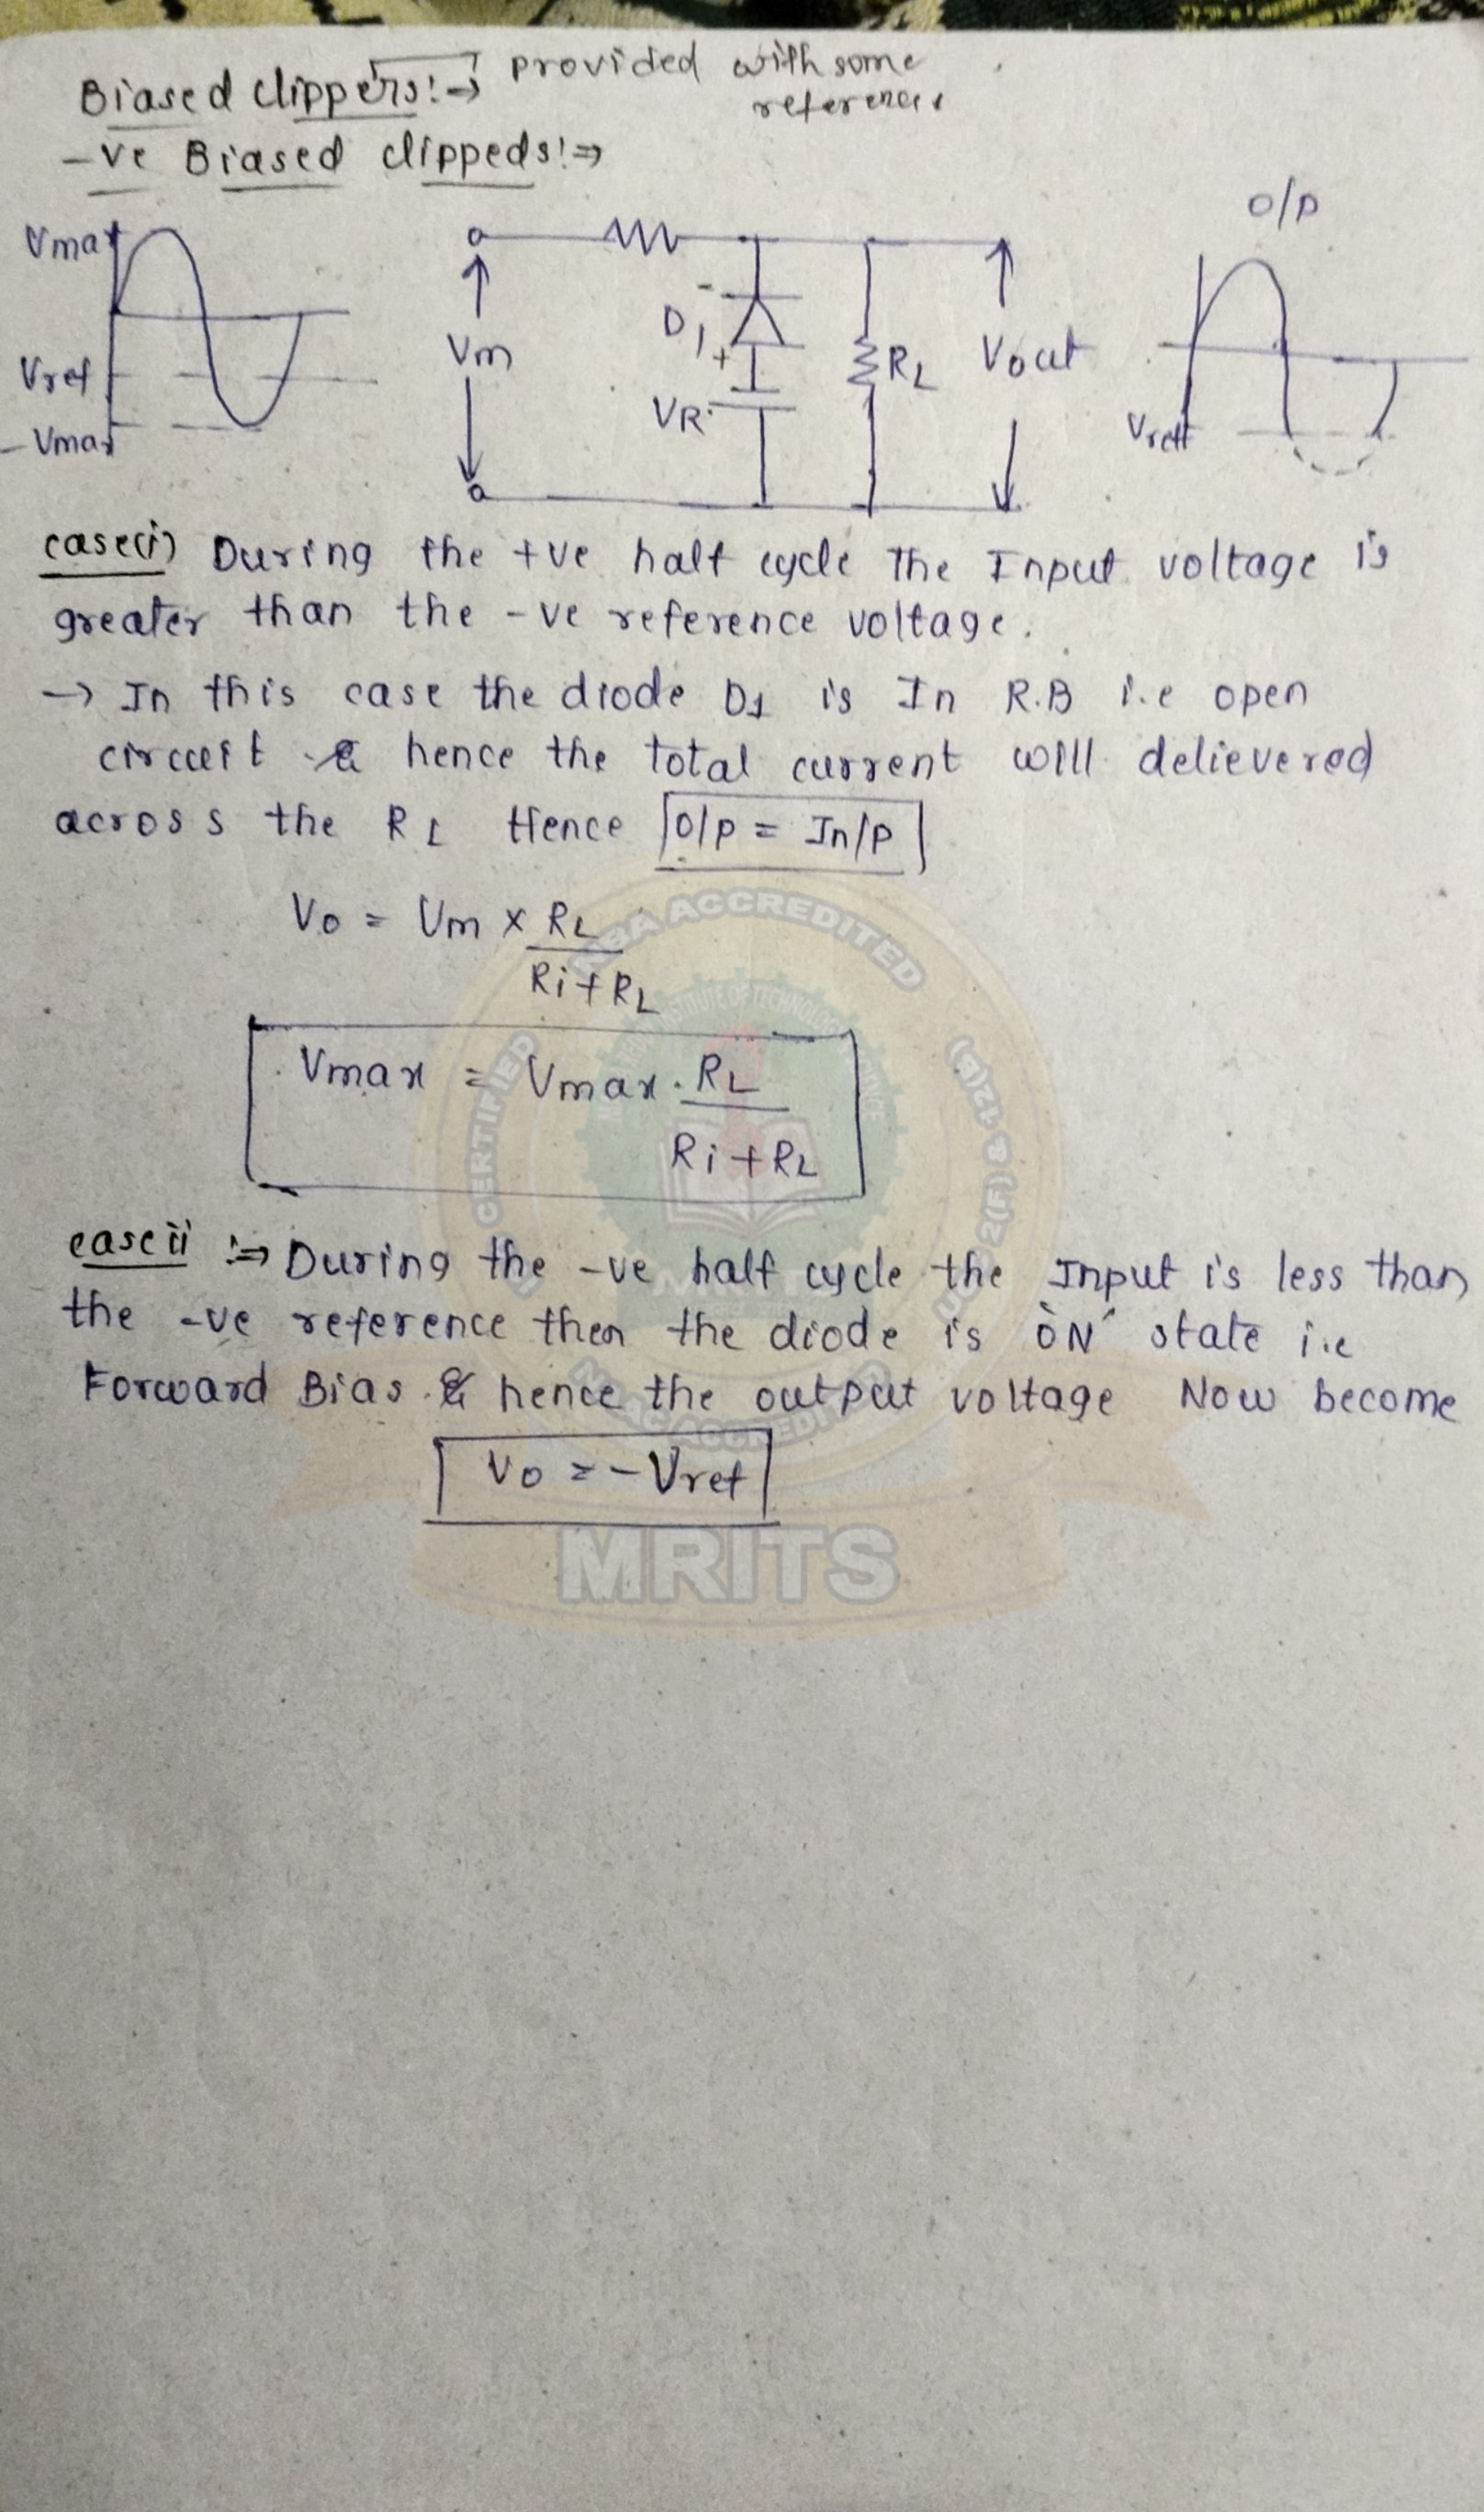 Biased clippers:→ provided with some
references
-ve Biased clippeds:⇒
O/P
Vmax
Vref
-Vmax
Vm
D1
-
+
VR
RL
Vout
Vreff
case(i) During the +ve half cycle The Input voltage is
greater than the -ve reference voltage.
→ In this case the diode D1 is In R.B i.e open
circuit & hence the total current will delievered
across the RL Hence O/P = In/P
Vo = Vm x RL
Ri+RL
Vmax = Vmax . RL
Ri+RL
case ii :⇒ During the -ve half cycle the Input is less than
the -ve reference then the diode is 'ON' state i.e
Forward Bias & hence the output voltage Now become
Vo = -Vref
NBA ACCREDITED
CERTIFIED
UGC 2(f) & 12(B)
NAAC ACCREDITED
MRITS